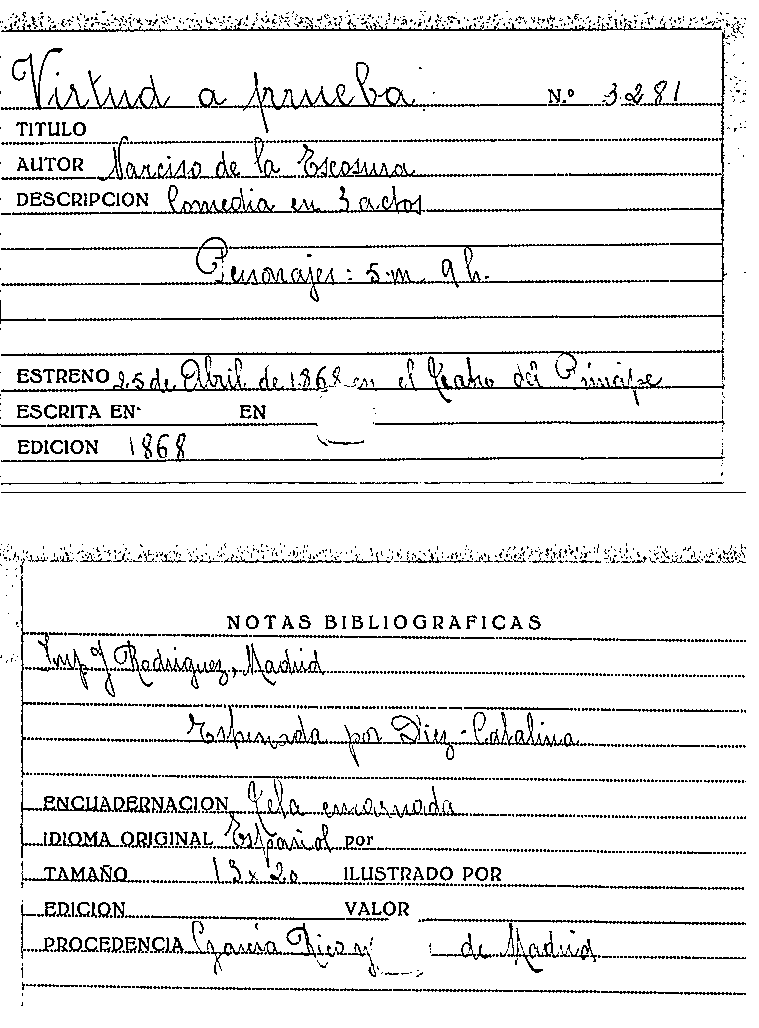 Virtud a prueba N.º 3281
TITULO
AUTOR Narciso de la Escosura
DESCRIPCION Comedia en 3 actos
Personajes: 5 m. 9 h.
ESTRENO 25 de Abril de 1868 en el Teatro del Príncipe
ESCRITA EN EN
EDICION 1868
NOTAS BIBLIOGRAFICAS
Imp J Rodriguez, Madrid
por Diez-Catalina
ENCUADERNACION Tela encarnada
IDIOMA ORIGINAL Español por
TAMAÑO 13 x 20 ILUSTRADO POR
EDICION VALOR
PROCEDENCIA García Rico y de Madrid